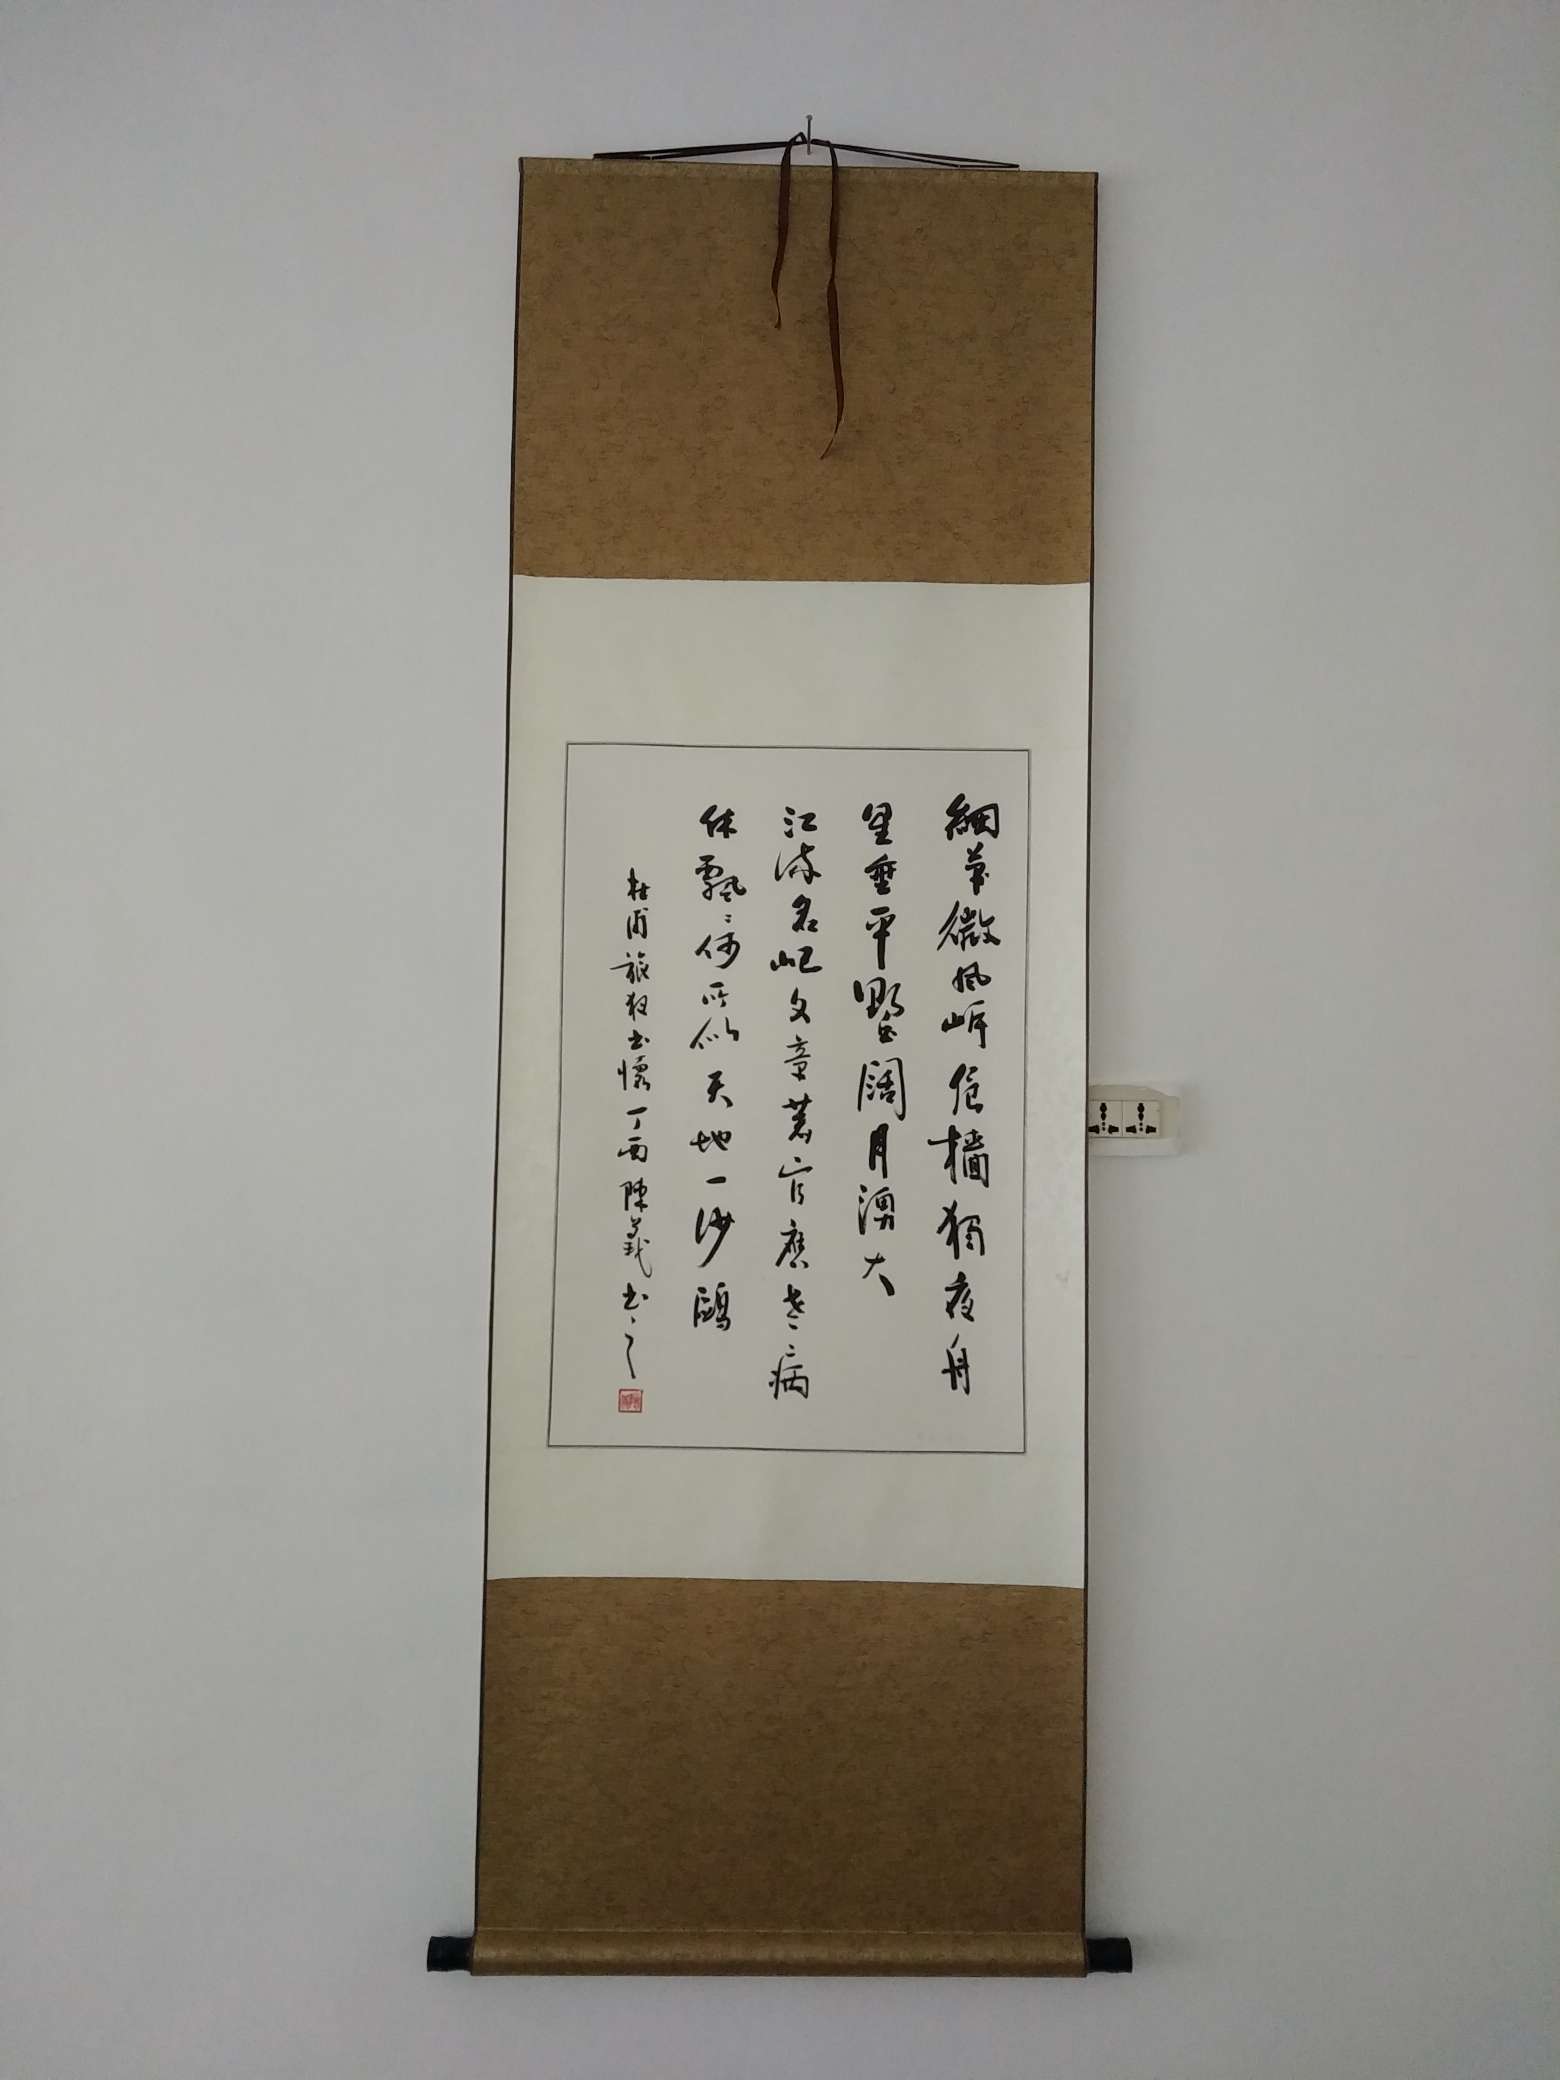 細草微風岸危檣獨夜舟
星垂平墅闊月湧大
江流名岂文章著官應老病
休飄〻何所似天地一沙鷗
杜甫旅夜書懷丁酉陳義書之